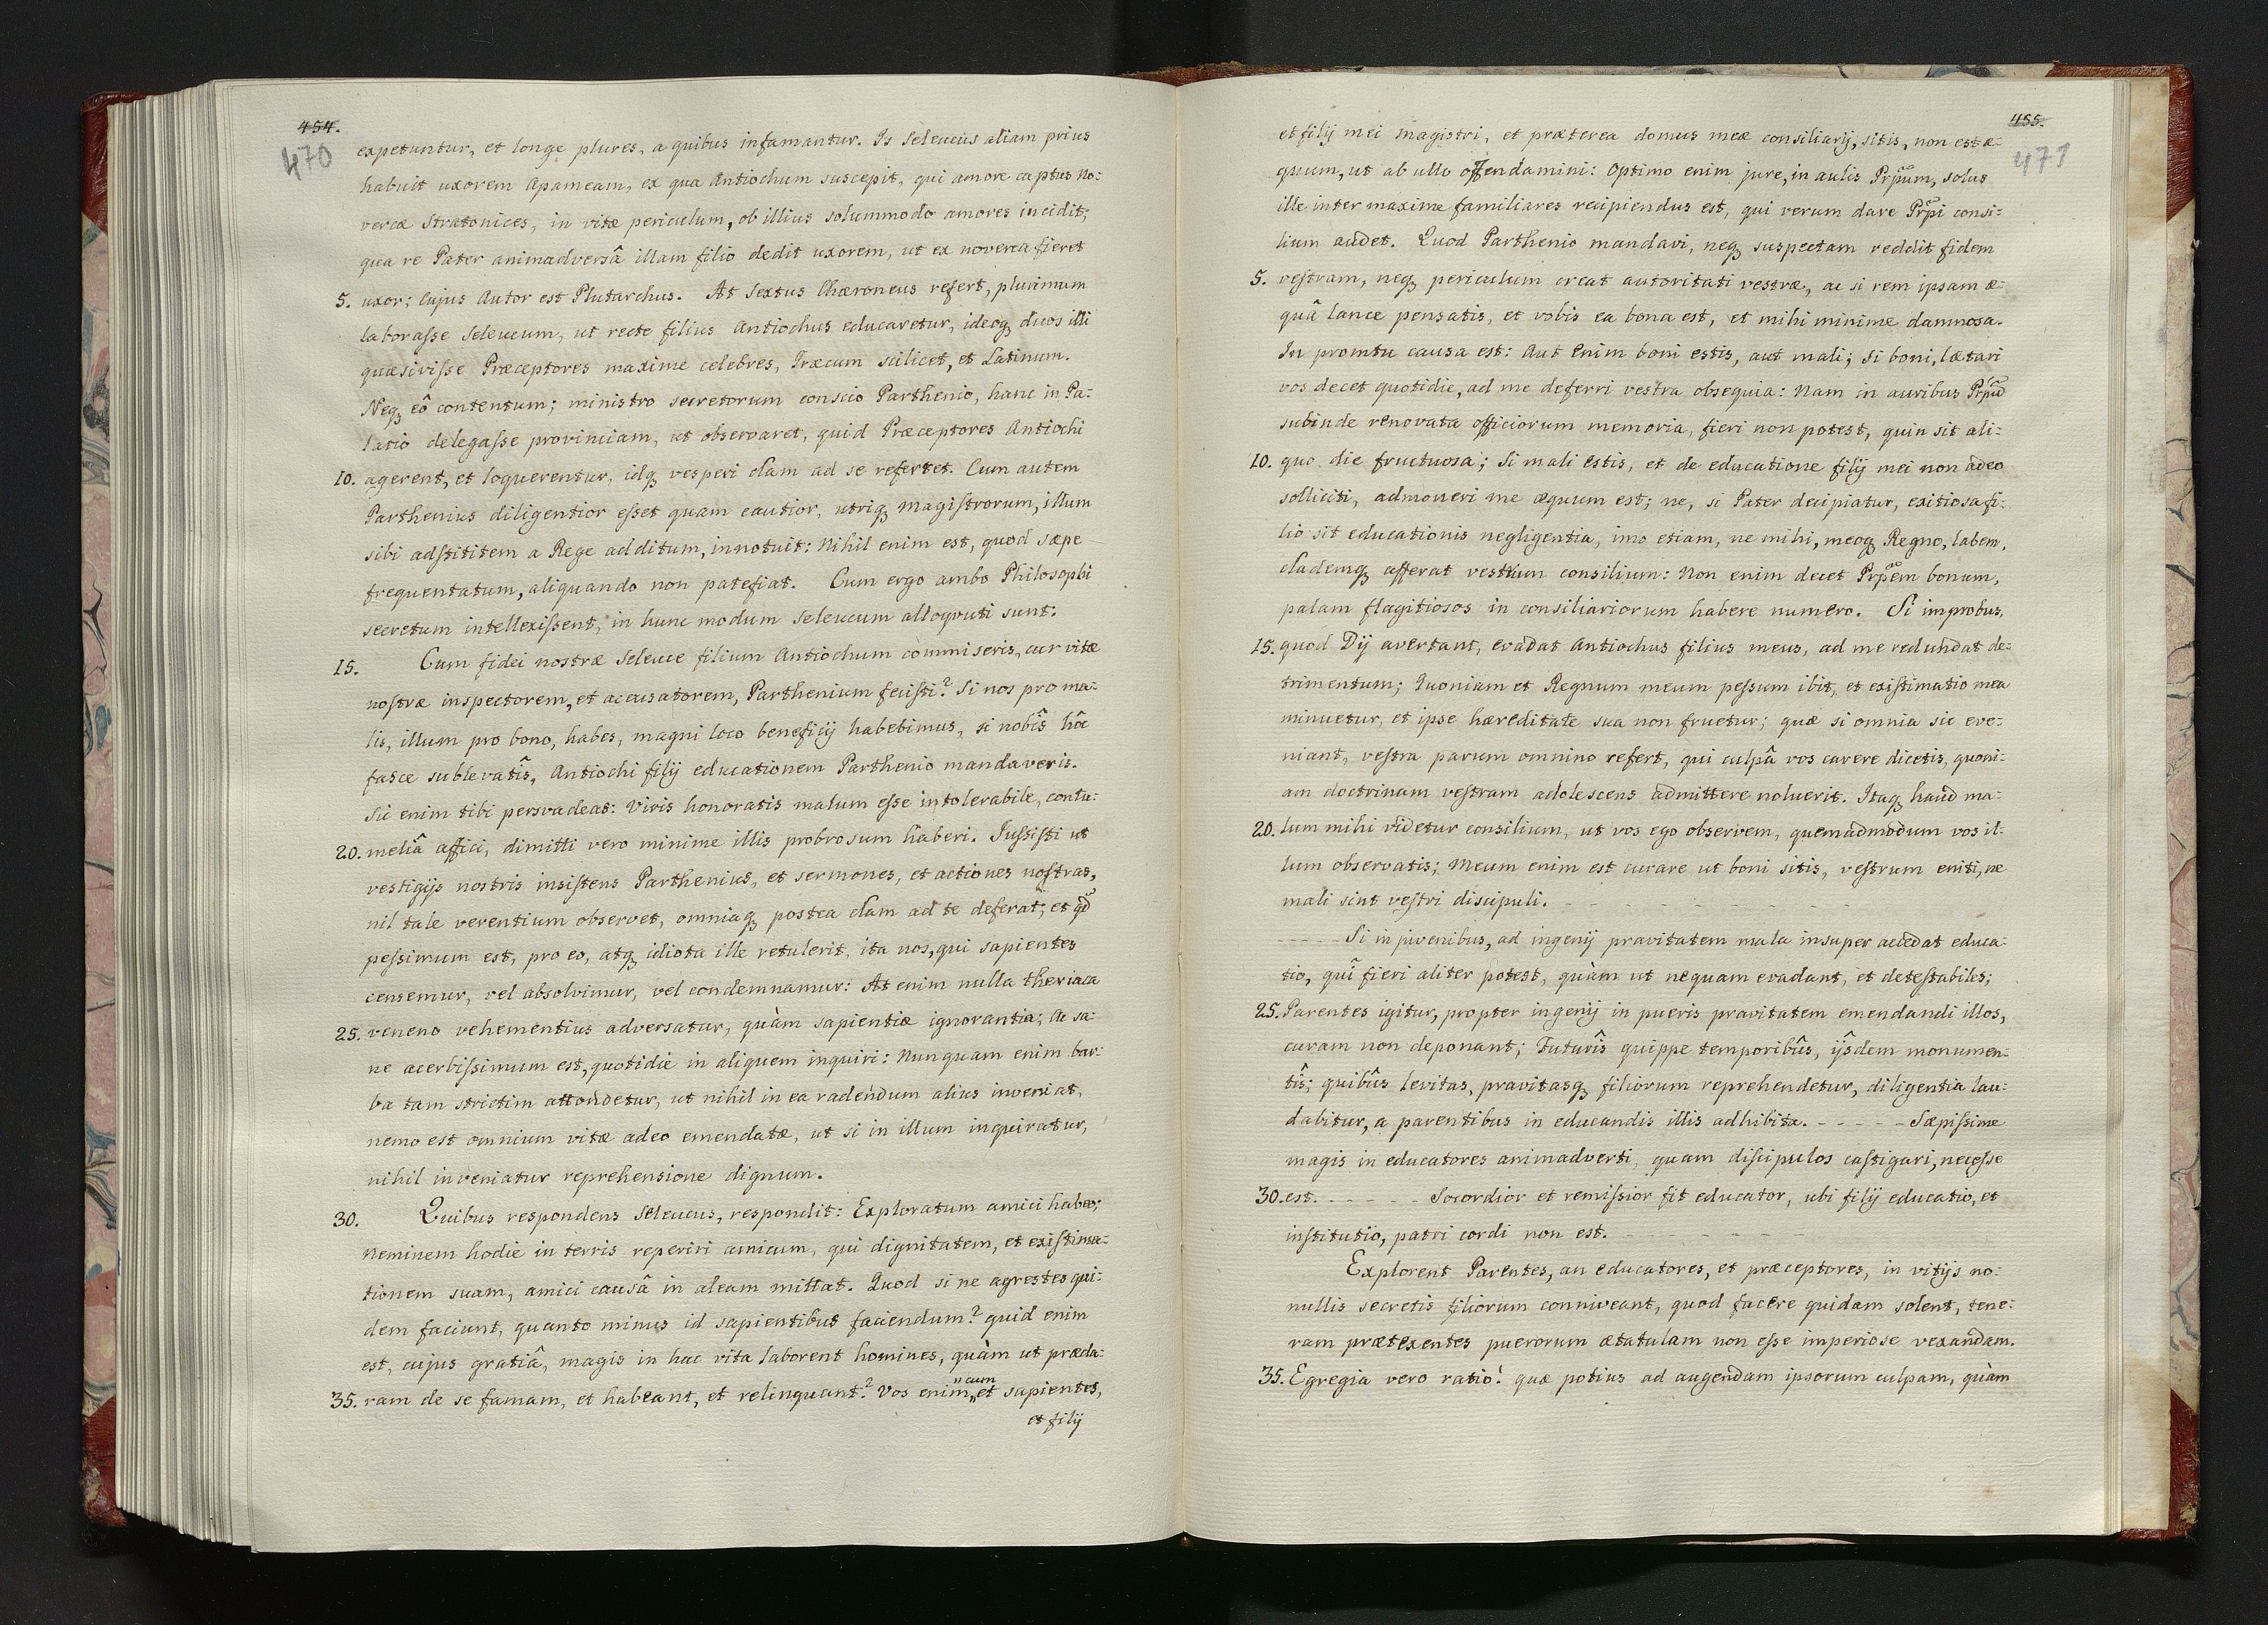 454.
470
expetuntur, et longe plures, a quibus infamantur. Is Seleucus aliam prius
habuit uxorem Apameam, ex qua Antiochum suscepit, qui amore captus no:
vercæ Stratonices, in vitæ periculum, ob illius solummodo amores incidit;
qua re Pater animadversâ illam filio dedit uxorem, ut ex noverca fieret
5. uxor; Cujus Autor est Plutarchus. At Sextus Chæroneus refert, plurimum
laborasse Seleucum, ut recte filius Antiochus educaretur, ideoq duos illi
quæsivisse Præceptores maxime celebres, Græcum scilicet, et Latinum.
Neq eô contentum; ministro secretorum conscio Parthenio, hanc in Pa:
latio delegasse provinciam, ut observaret, quid Præceptores Antiochi
10. agerent, et loquerentur, idq vesperi clam ad se referret. Cum autem
Parthenius diligentior esset quam cautior, utriq magistrorum, illum
sibi adstititem a Rege additum, innotuit: Nihil enim est, quod sæpe
frequentatum, aliquando non patefiat. Cum ergo ambo Philosophi
secretum intellexissent, in hunc modum Seleucum alloqvuti sunt:
15. Cum fidei nostræ Seleuce filium Antiochum commiseris, cur vitæ
nostræ inspectorem, et accusatorem, Parthenium fecisti? Si nos pro ma:
lis, illum pro bono, habes, magni loco beneficij habebimus, si nobîs hôc
fasce sublevatîs, Antiochi filij educationem Parthenio mandaveris.
Sic enim tibi persvadeas: Viris honoratis malum esse intolerabile, contu:
20. meliâ affici, dimitti vero minime illis probrosum haberi. Jussisti ut
vestigijs nostris insistens Parthenius, et sermones, et actiones nostras,
nil tale verentium observet, omniaq postea clam ad te deferat; et qd
pessimum est, pro eo, atq idiota ille retulerit, ita nos, qui sapientes
censemur, vel absolvimur, vel condemnamur: At enim nulla theriaca
25. veneno vehementius adversatur, quàm sapientiæ ignorantia; Ac sa:
ne acerbissimum est, quotidie in aliquem inquiri: Nunquam enim bar:
ba tam strictim attondetur, ut nihil in ea radendum alius inveniat,
nemo est omnium vitæ adeo emendatæ, ut si in illum inquiratur,
nihil inveniatur reprehensione dignum.
30. Quibus respondens Seleucus, respondit: Exploratum amici habeo;
Neminem hodie in terris reperiri amicum, qui dignitatem, et existima:
tionem suam, amici causâ in aleam mittat. Quod si ne agrestes qui:
dem faciunt, quanto minus id sapientibus faciendum? quid enim
est, cujus gratiâ, magis in hac vita laborent homines, quàm ut præcla:
"cum
35. ram de se famam, et habeant, et relinquant? Vos enim„et sapientes,
et filij
455.
471
et filij mei magistri, et præterea domus meæ consiliarij, sitis, non est æ:
quum, ut ab ullo offendamini: Optimo enim jure, in aulis Prpum, solus
ille inter maxime familiares recipiendus est, qui verum dare Prpi consi:
lium audet. Quod Parthenio mandavi, neq suspectam reddit fidem
5. vestram, neq periculum creat autoritati vestræ, ac si rem ipsam æ:
quâ lance pensatis, et vobis ea bona est, et mihi minime damnosa.
In promtu causa est: Aut enim boni estis, aut mali; Si boni, lætari
vos decet quotidie, ad me deferri vestra obsequia: Nam in auribus Prpū
subinde renovata officiorum memoria, fieri non potest, quin sit ali:
10. quo die fructuosa; Si mali estis, et de educatione filij mei non adeo
solliciti, admoneri me æquum est; ne, si Pater decipiatur, exitiosa fi:
lio sit educationis negligentia, imo etiam, ne mihi, meoq Regno, labem,
clademq afferat vestrum consilium: Non enim decet Prpem bonum,
palam flagitiosos in consiliariorum habere numero. Si improbus,
15. quod Dij avertant, evadat Antiochus filius meus, ad me redundat de:
trimentum; Quoniam et Regnum meum pessum ibit, et existimatio mea
minuetur, et ipse hæreditate sua non fruetur; quæ si omnia sic eve:
niant, vestra parum omnino refert, qui culpâ vos carere dicetis, quoni:
am doctrinam vestram adolescens admittere noluerit. Itaq haud ma:
20. lum mihi videtur consilium, ut vos ego observem, quemadmodum vos il:
lum observatis; Meum enim est curare ut boni sitis, vestrum eniti, ne
mali sint vestri discipuli. - - - - - - - -
- - - - Si in juvenibus, ad ingenij pravitatem mala insuper accedat educa:
tio, quî fieri aliter potest, quàm ut nequam evadant, et detestabiles;
25. Parentes igitur, propter ingenij in pueris pravitatem emendandi illos,
curam non deponant; Futurîs quippe temporibûs, ijsdem monumen:
tîs; quibûs levitas, pravitasq filiorum reprehendetur, diligentia lau:
dabitur, a parentibus in educandis illis adhibita. - - - - - Sæpissime
magis in educatores animadverti, quam discipulos castigari, necesse
30. est. - - - - - - Socordior et remissior fit educator, ubi filij educatio, et
institutio, patri cordi non est. - - - - - - -
Explorent Parentes, an educatores, et præceptores, in vitijs no:
nullis secretis filiorum conniveant, quod facere quidam solent, tene:
ram prætexentes puerorum ætatulam non esse imperiose vexandam.
35. Egregia vero ratio! quæ potius ad augendam ipsorum culpam, quàm